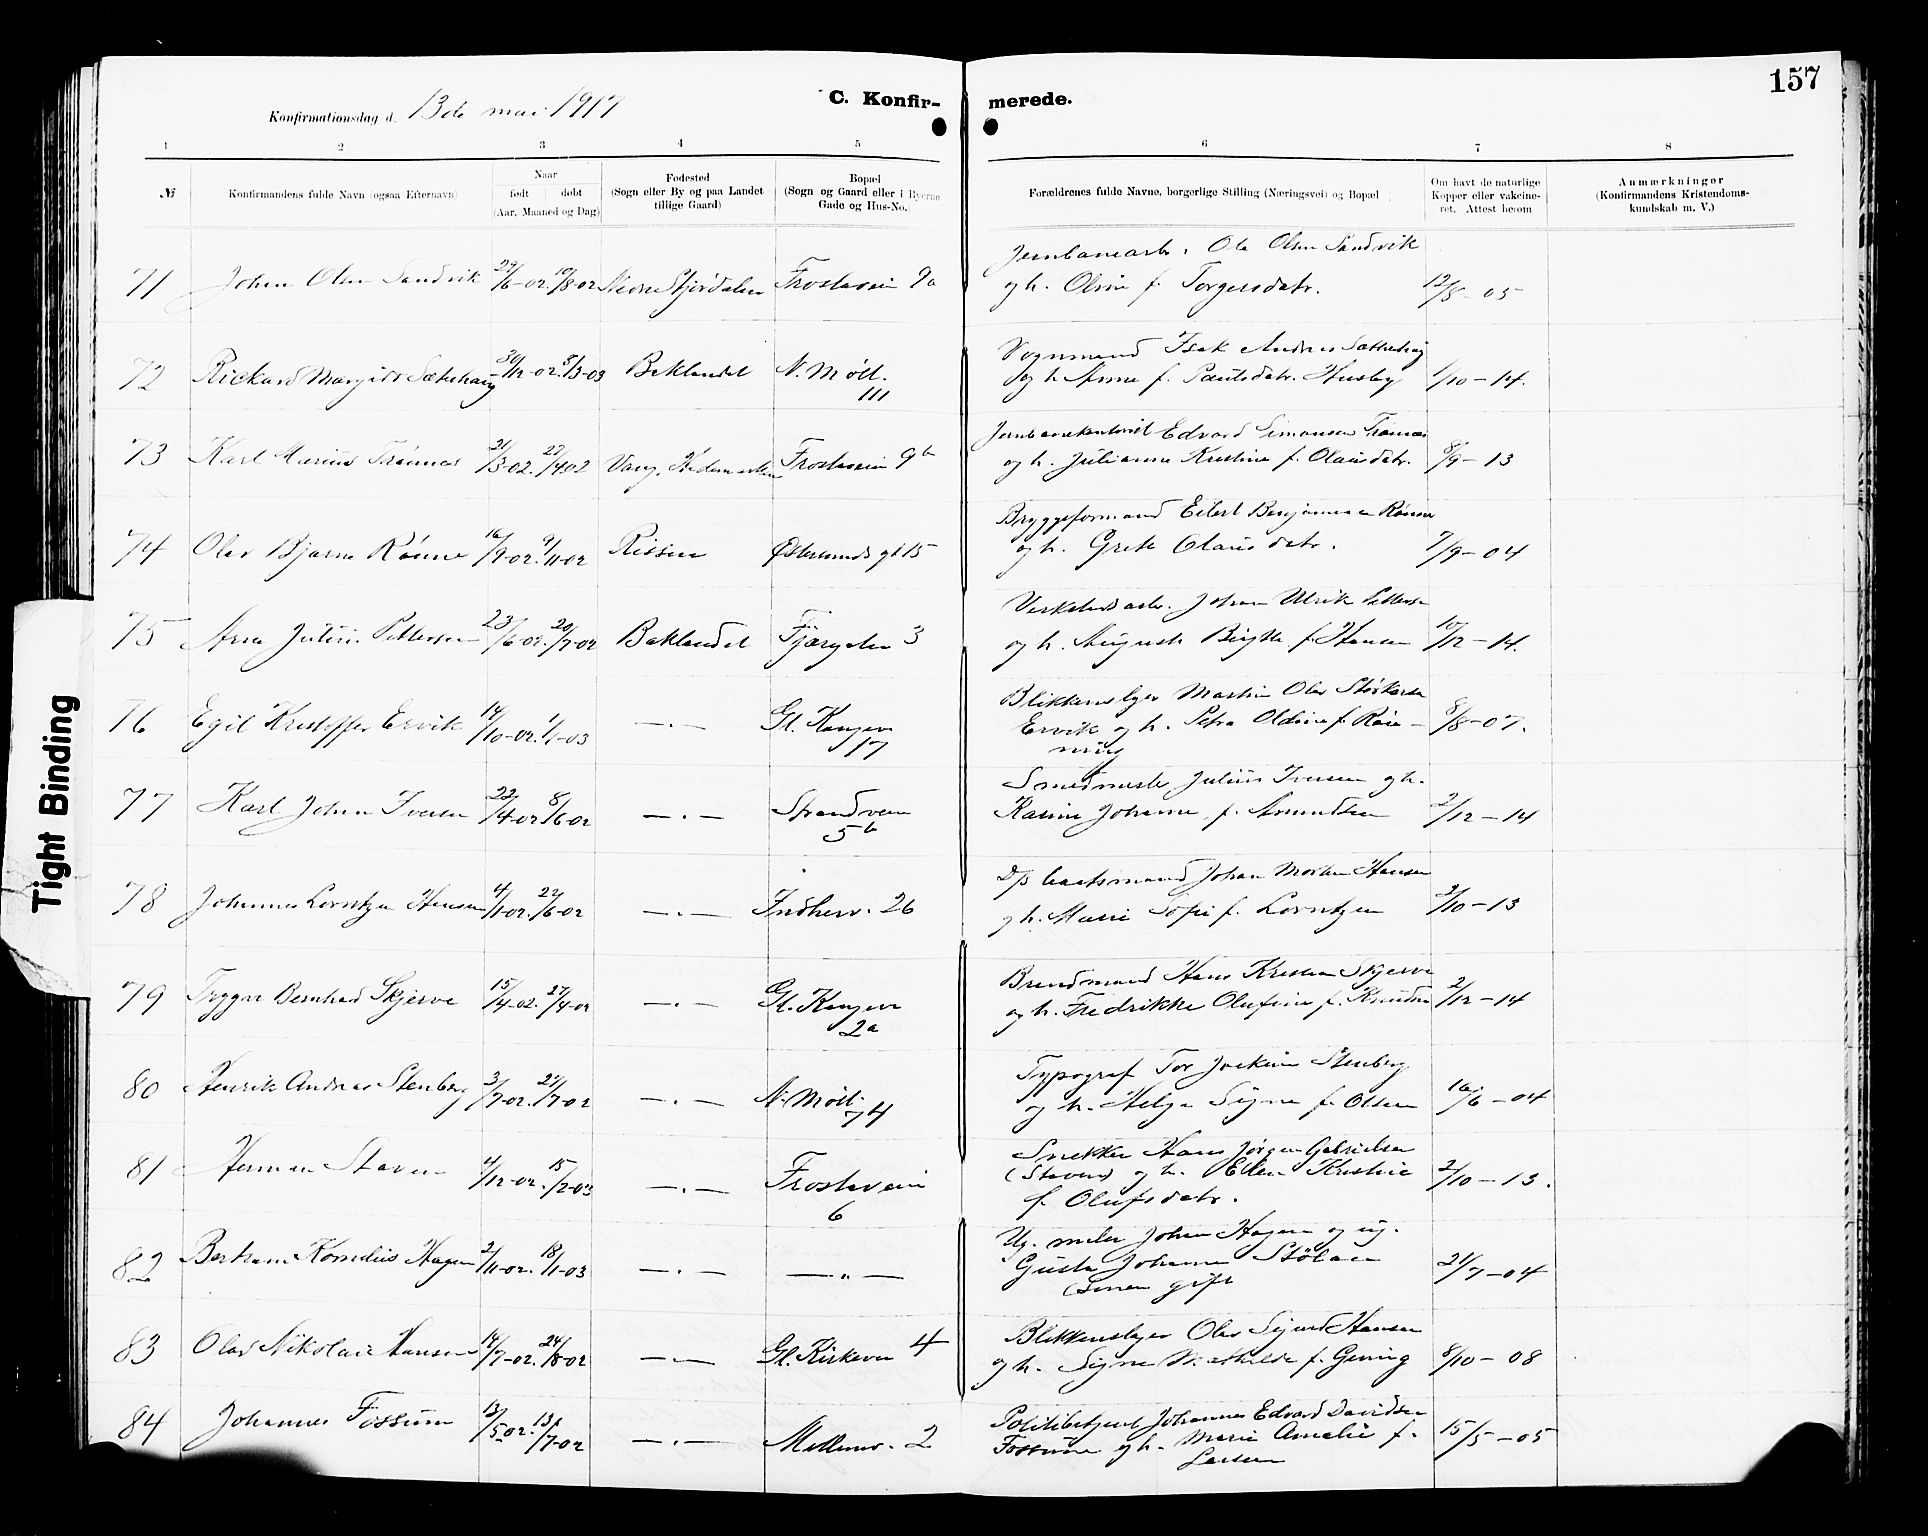 157
C. Konfir- merede.
Konfirmationsdag d. 13de mai 1917
1 2 3 4 5 6 7 8
No
Konfirmandens fulde Navn (ogsaa Efternavn)
Naar
født døbt
(Aar, Maaned og Dag)
Fødested
(Sogn eller By og paa Landet
tillige Gaard)
Bopæl
(Sogn og Gaard eller i Byerne
Gade og Hus-No.)
Forældrenes fulde Navne, borgerlige Stilling (Næringsvei) og Bopæl
Om havt de naturlige
Kopper eller vakcine-
ret. Attest herom
Anmærkninger
(Konfirmandens Kristendoms-
kundskab m. V.)
Jernbanearb. Ole Olsen Sandvik
71 Johan Olsen Sandvik 29/6-02. 10/8-02 Nedre Stjørdalen Frostavein 9a og h. Oline f. Torgersdatr. 12/8-05
Vognmand Isak Andreas Sætherhaug
72 Rickard Margido Sæterhaug 30/12-02. 8/3-03 Baklandet N. Møll. og h. Anna f. Paulsdatr. Husby 1/10-14.
111
Jernbanekontorist Edvard Simonsen Trønnes
73 Karl Marius Trønnes 21/3-02. 27/4 02 Vang, Hedemarken Frostavein 9b og h. Julianna Kristine f. Olausdatr. 8/9-13
Bryggeformand Eilert Benjaminsen Rønne
74 Olav Bjarne Rønne 16/9-02. 9/11-02 Rissen Østersunds gt 15 og h. Grete Olausdatr. 7/9-04
Verkstedsarb. Johan Ulrik Pettersen
75 Arne Julius Pettersen 23/6-02. 20/7-02 Baklandet Fjærgaten 3 og h. Augusta Birgitte f. Hansen 10/12-14.
Blikkenslager Martin Olav Størkersen
76 Egil Kristoffer Ervik 14/10-02. 1/1-03 —.— Gl. Kongev Ervik og h. Petra Oldine f. Røn- 8/8-07.
17 ning
Smedmester Julius Iversen og h.
77 Karl Johan Iversen 22/4-02 8/6-02 —.— Strandvein Karine Johanne f. Amundsen 2/12-14
5b
D/S baatsmand Johan Morten Hansen
78 Johannes Lorntzen Hansen 4/1-02. 22/6-02 —.— Indherv. 26 og h. Marie Sofie f. Lorntzen 2/10-13
Brandmand Hans Kristian Skjerve
79 Trygve Bernhard Skjerve 15/4-02. 27/4-02 —.— Gl. Kongev og h. Fredrikke Olufine f. Knudsen 2/12-14
2a
Typograf Tor Joakim Stenberg
80 Henrik Andreas Stenberg 3/7-02. 27/7-02 —.— N. Møll. og h. Helga Signe f. Olsen 16/6-04
74
Snekker Hans Jørgen Gabrielsen
81 Herman Staven 4/12-02. 15/2-03 —.— Frostavein (Staven) og h. Ellen Kristine 2/10-13.
6 f. Olufsdatr.
Ug. maler Johan Hagen og ug.
82 Bertram Kornelius Hagen 2/11-02. 18/1-03 —.— —„— Gusta Johanna Stølan 21/7-04
(Senere gift
Blikkenslager Olav Sigurd Hansen
83 Olav Nikolai Hansen 14/7-02. 24/8-02 —.— Gl. Kirkevei 4 og h. Signe Mathilde f. Gening 8/10-08
Politibetjent Johannes Edvard Davidsen
84 Johannes Fossum 13/5-02. 13/7-02 —.— Mellemv. 2 Fossum og h. Marie Amalie f. 15/5-05
Larsen
Tight Binding